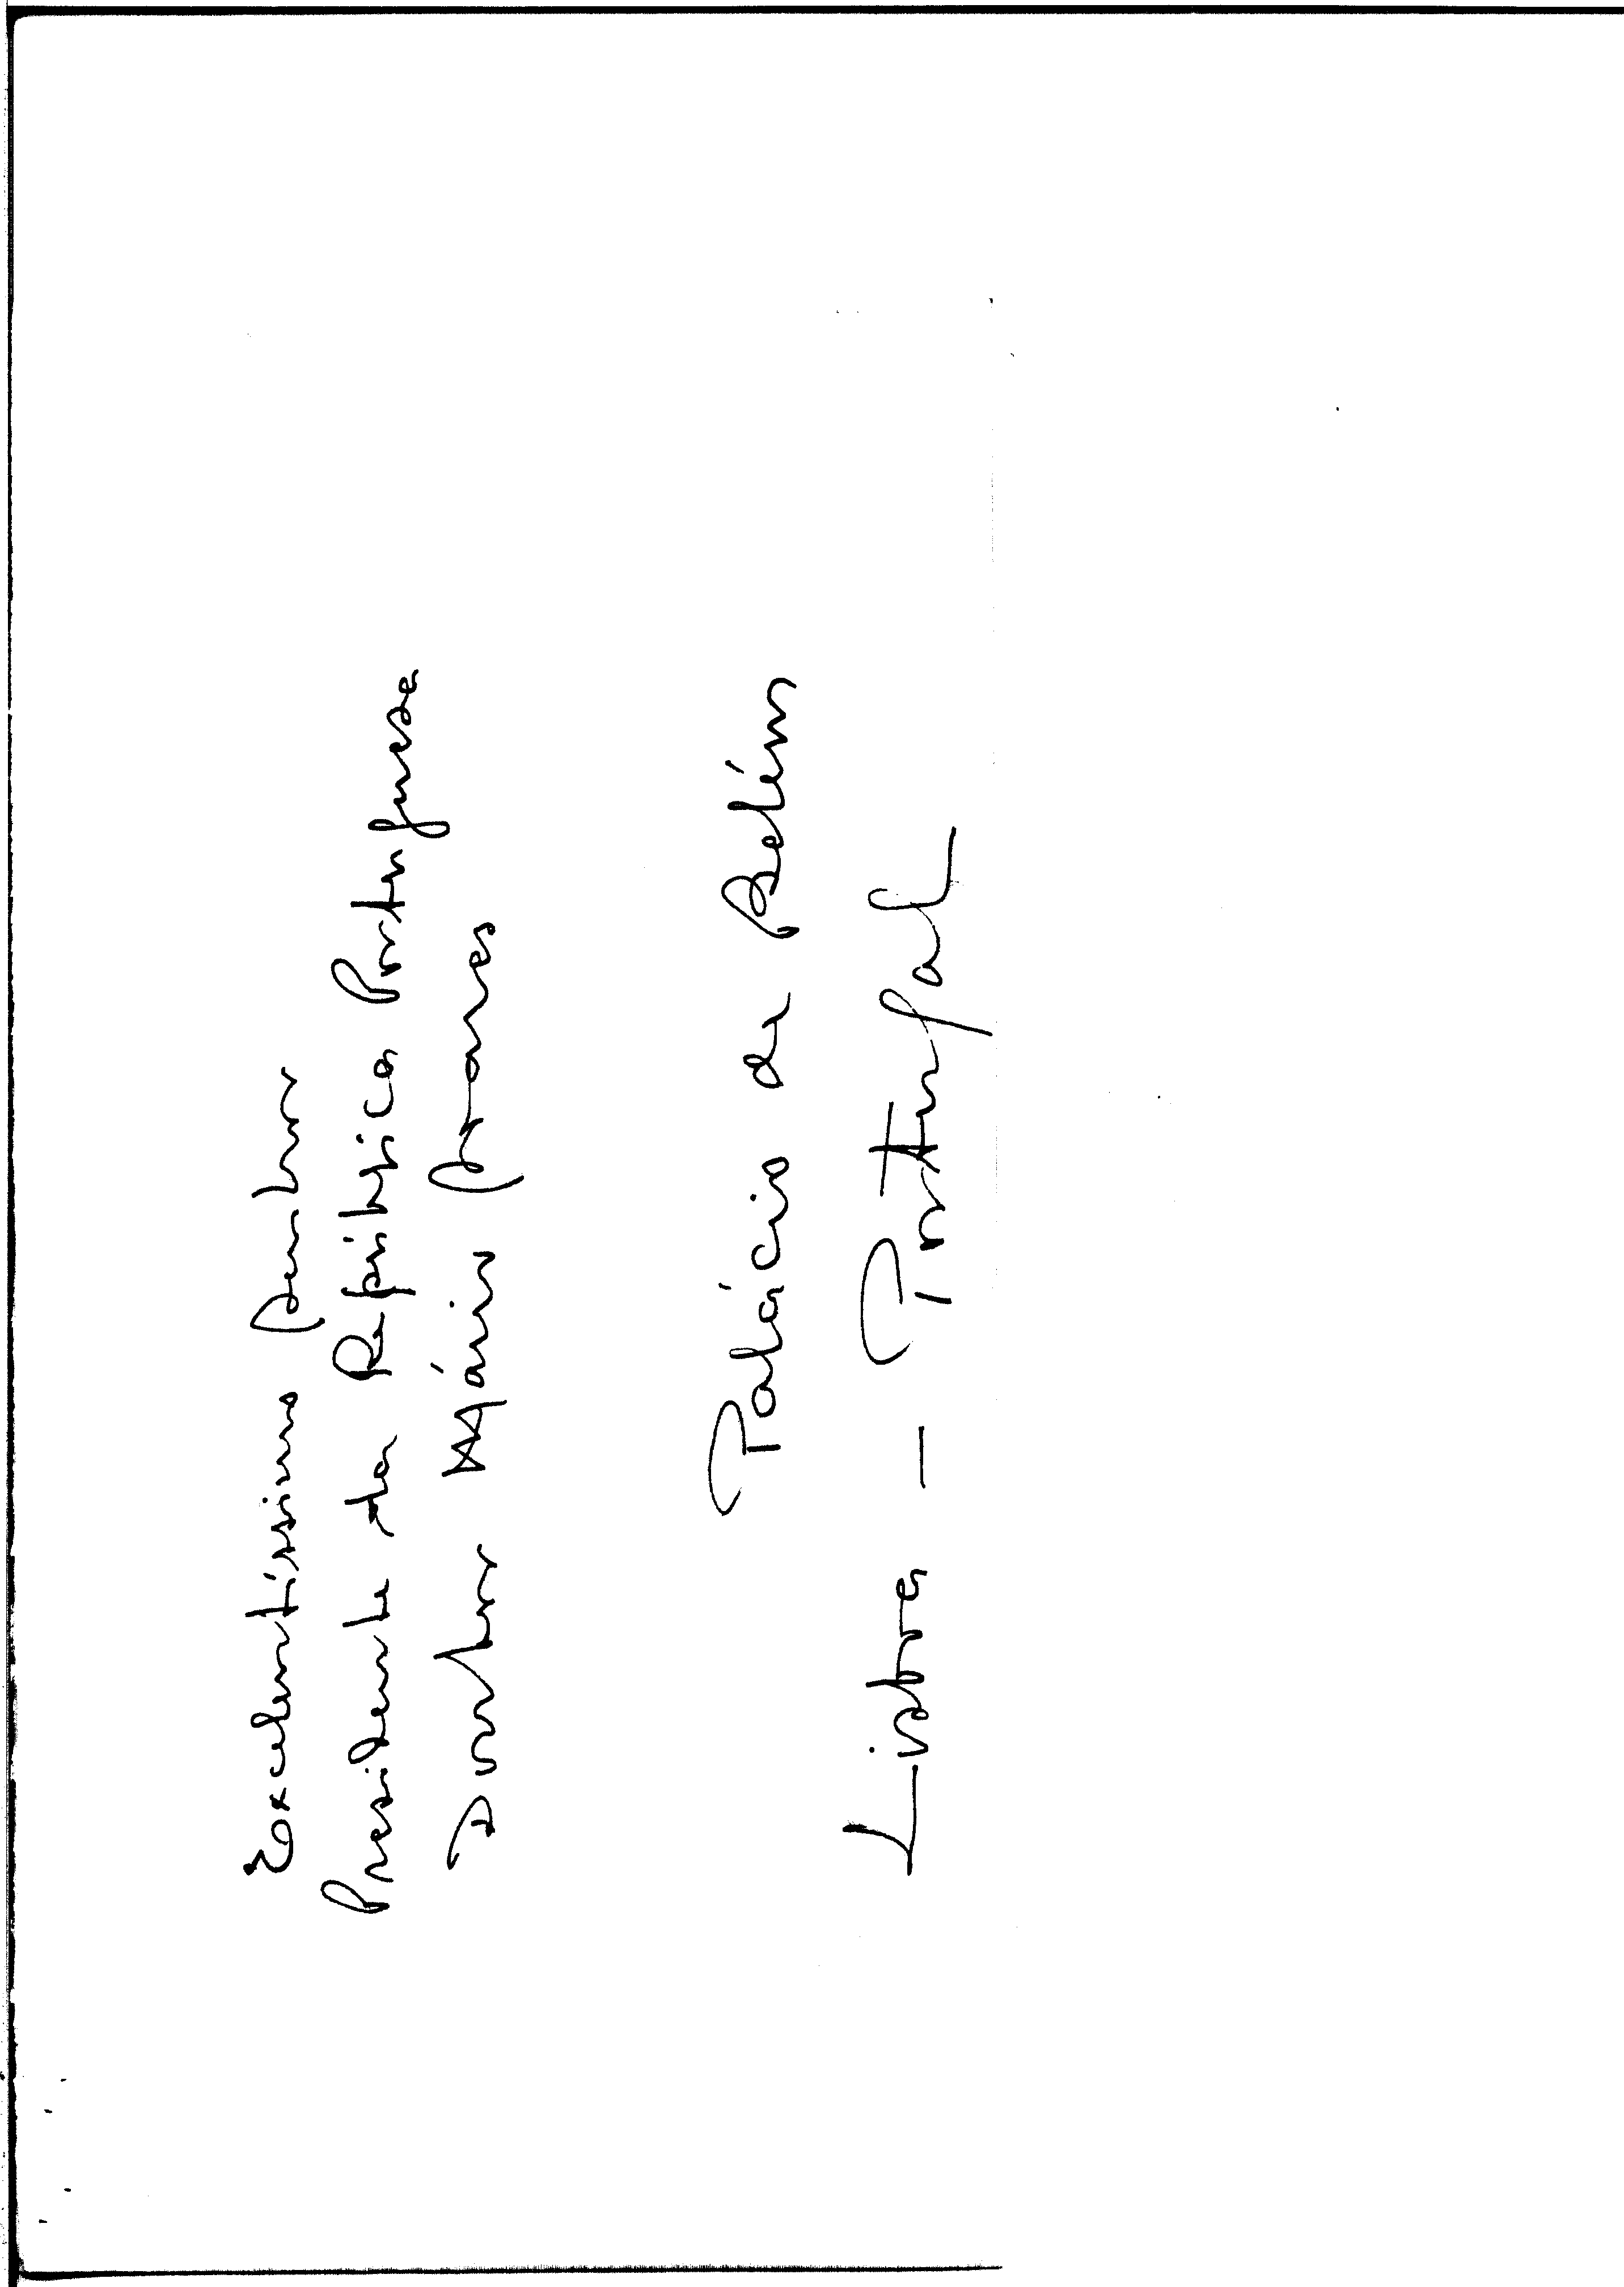 Excelentíssimo Senhor
Presidente da República Portuguesa
Doutor Mário Soares
Palácio de Belém
Lisboa - Portugal